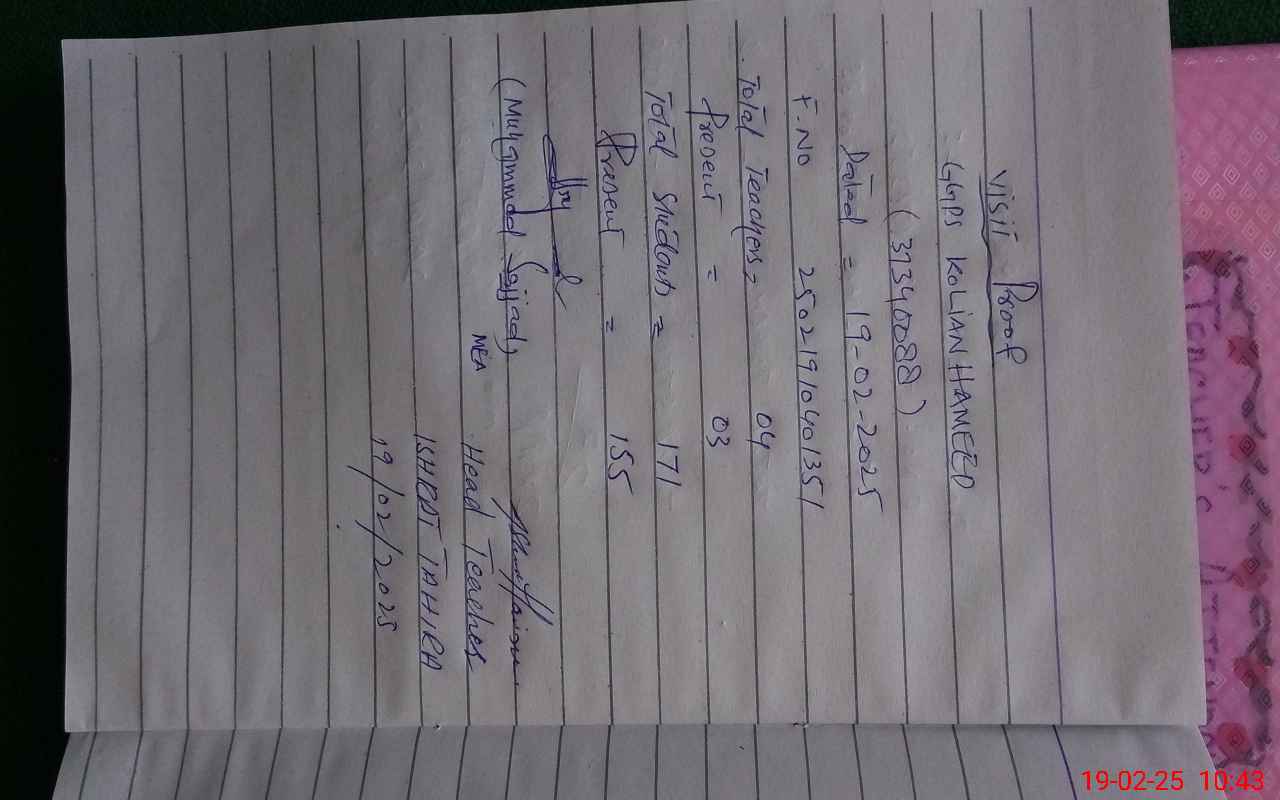 Visit Proof
GGPS KOLIAN HAMEED
(37340088)
Dated = 19-02-2025
F.No 25021910401351
Total Teachers = 04
Present = 03
Total Students = 171
Present = 155
(Muhammad Sajjad)
MEA
Head Teacher
ISHRAT TAHIRA
19/02/2025
19-02-25 10:43